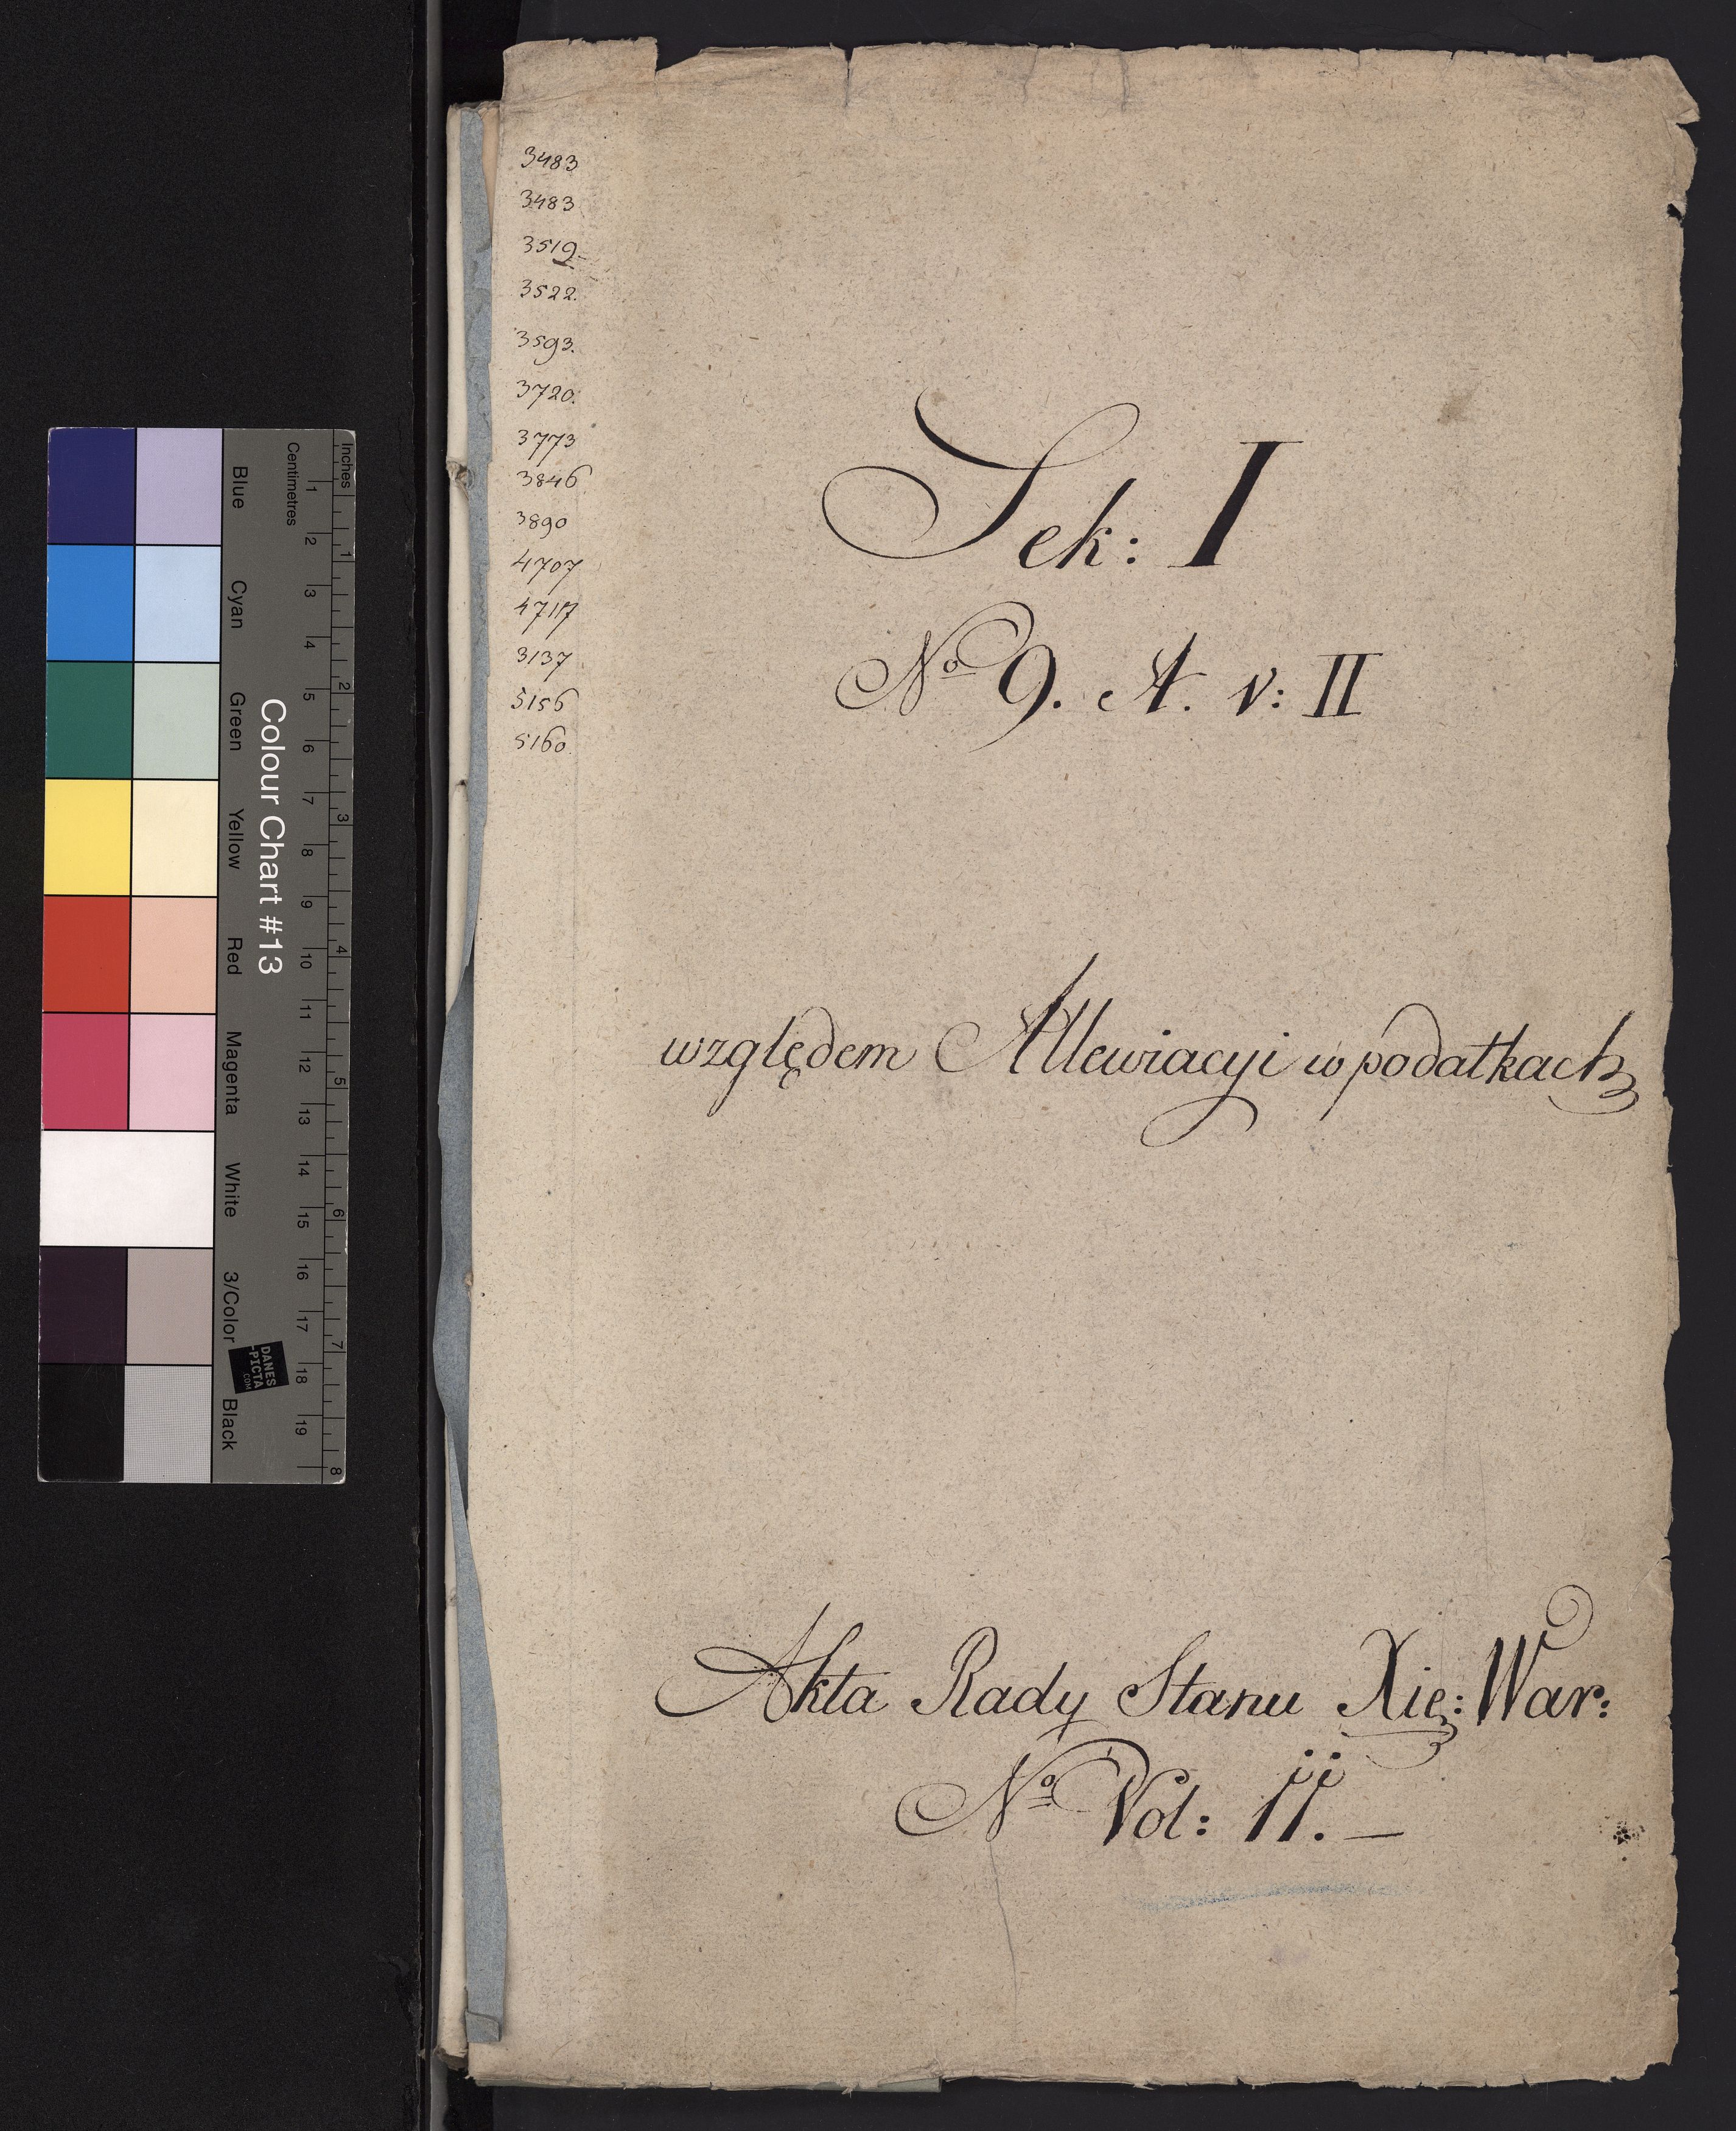 3483
3483
3519
3522.
3593.
3720.
3773
3846
3890
4707
4717
3137
5156
5160.
Sek: I
No 9. A. v: II
względem Allewiacyi w podatkach
Akta Rady Stanu Xię: War:
No Vol: II. —
Inches
Centimetres
Colour Chart #13
Blue
Cyan
Green
Yellow
Red
Magenta
White
3/Color
Black
1 2 3 4 5 6 7 8 9 10 11 12 13 14 15 16 17 18 19
1 2 3 4 5 6 7 8
DANES
-PICTA
.COM